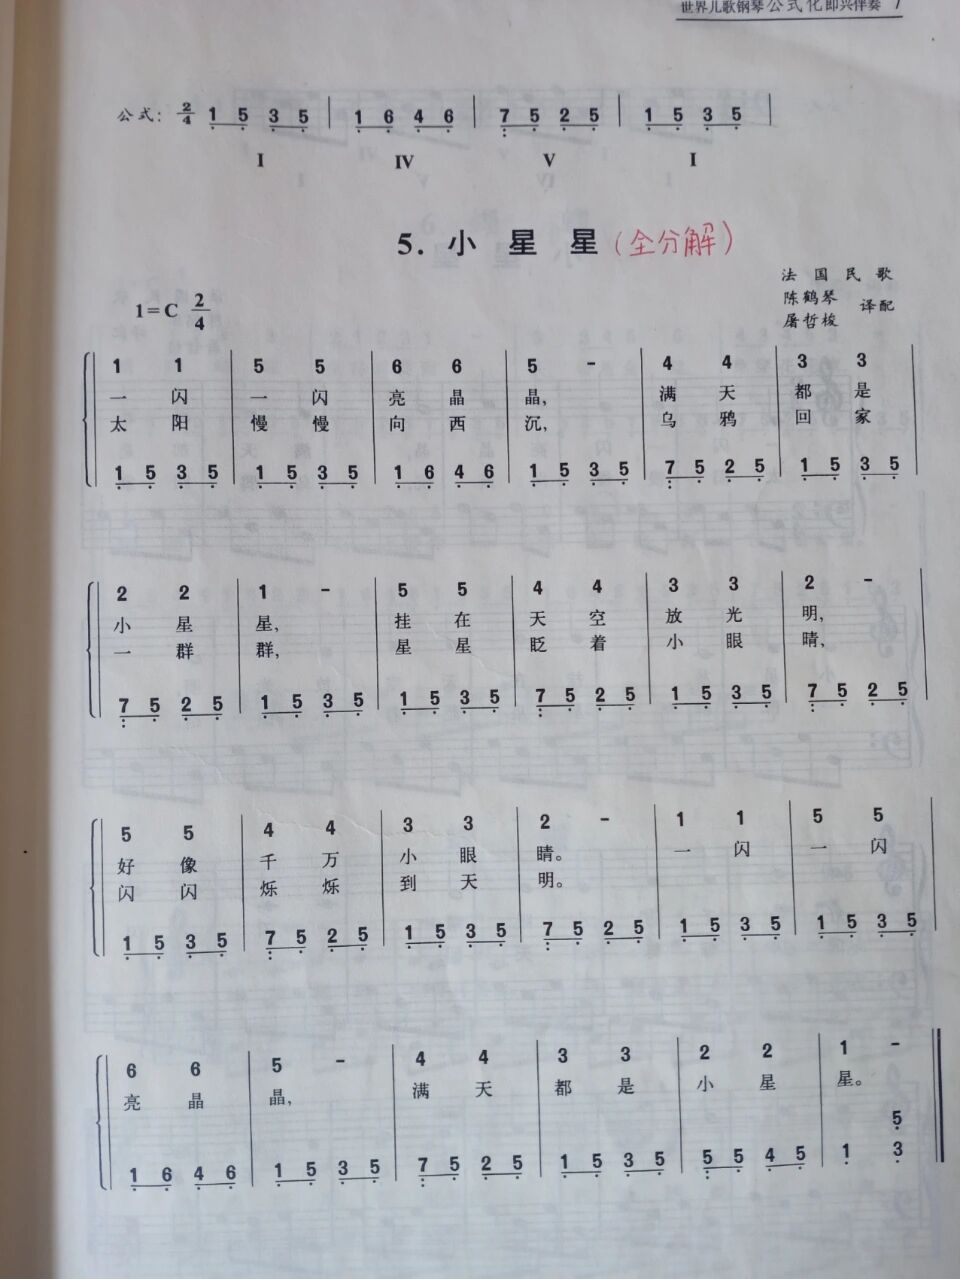 世界儿歌钢琴公式化即兴伴奏 7
公式: 2/4 1 5 3 5 | 1 6 4 6 | 7 5 2 5 | 1 5 3 5 |
I IV V I
5. 小 星 星 (全分解)
法 国 民 歌
陈鹤琴
屠哲梭 译配
1=C 2/4
1 1 | 5 5 | 6 6 | 5 - | 4 4 | 3 3 |
一 闪 一 闪 亮 晶 晶, 满 天 都 是
太 阳 慢 慢 向 西 沉, 乌 鸦 回 家
1 5 3 5 | 1 5 3 5 | 1 6 4 6 | 1 5 3 5 | 7 5 2 5 | 1 5 3 5 |
2 2 | 1 - | 5 5 | 4 4 | 3 3 | 2 - |
小 星 星, 挂 在 天 空 放 光 明,
一 群 群, 星 星 眨 着 小 眼 睛,
7 5 2 5 | 1 5 3 5 | 1 5 3 5 | 7 5 2 5 | 1 5 3 5 | 7 5 2 5 |
5 5 | 4 4 | 3 3 | 2 - | 1 1 | 5 5 |
好 像 千 万 小 眼 睛。 一 闪 一 闪
闪 闪 烁 烁 到 天 明。
1 5 3 5 | 7 5 2 5 | 1 5 3 5 | 7 5 2 5 | 1 5 3 5 | 1 5 3 5 |
6 6 | 5 - | 4 4 | 3 3 | 2 2 | 1 - ‖
亮 晶 晶, 满 天 都 是 小 星 星。
5
1 6 4 6 | 1 5 3 5 | 7 5 2 5 | 1 5 3 5 | 5 5 4 5 | 1 3 ‖